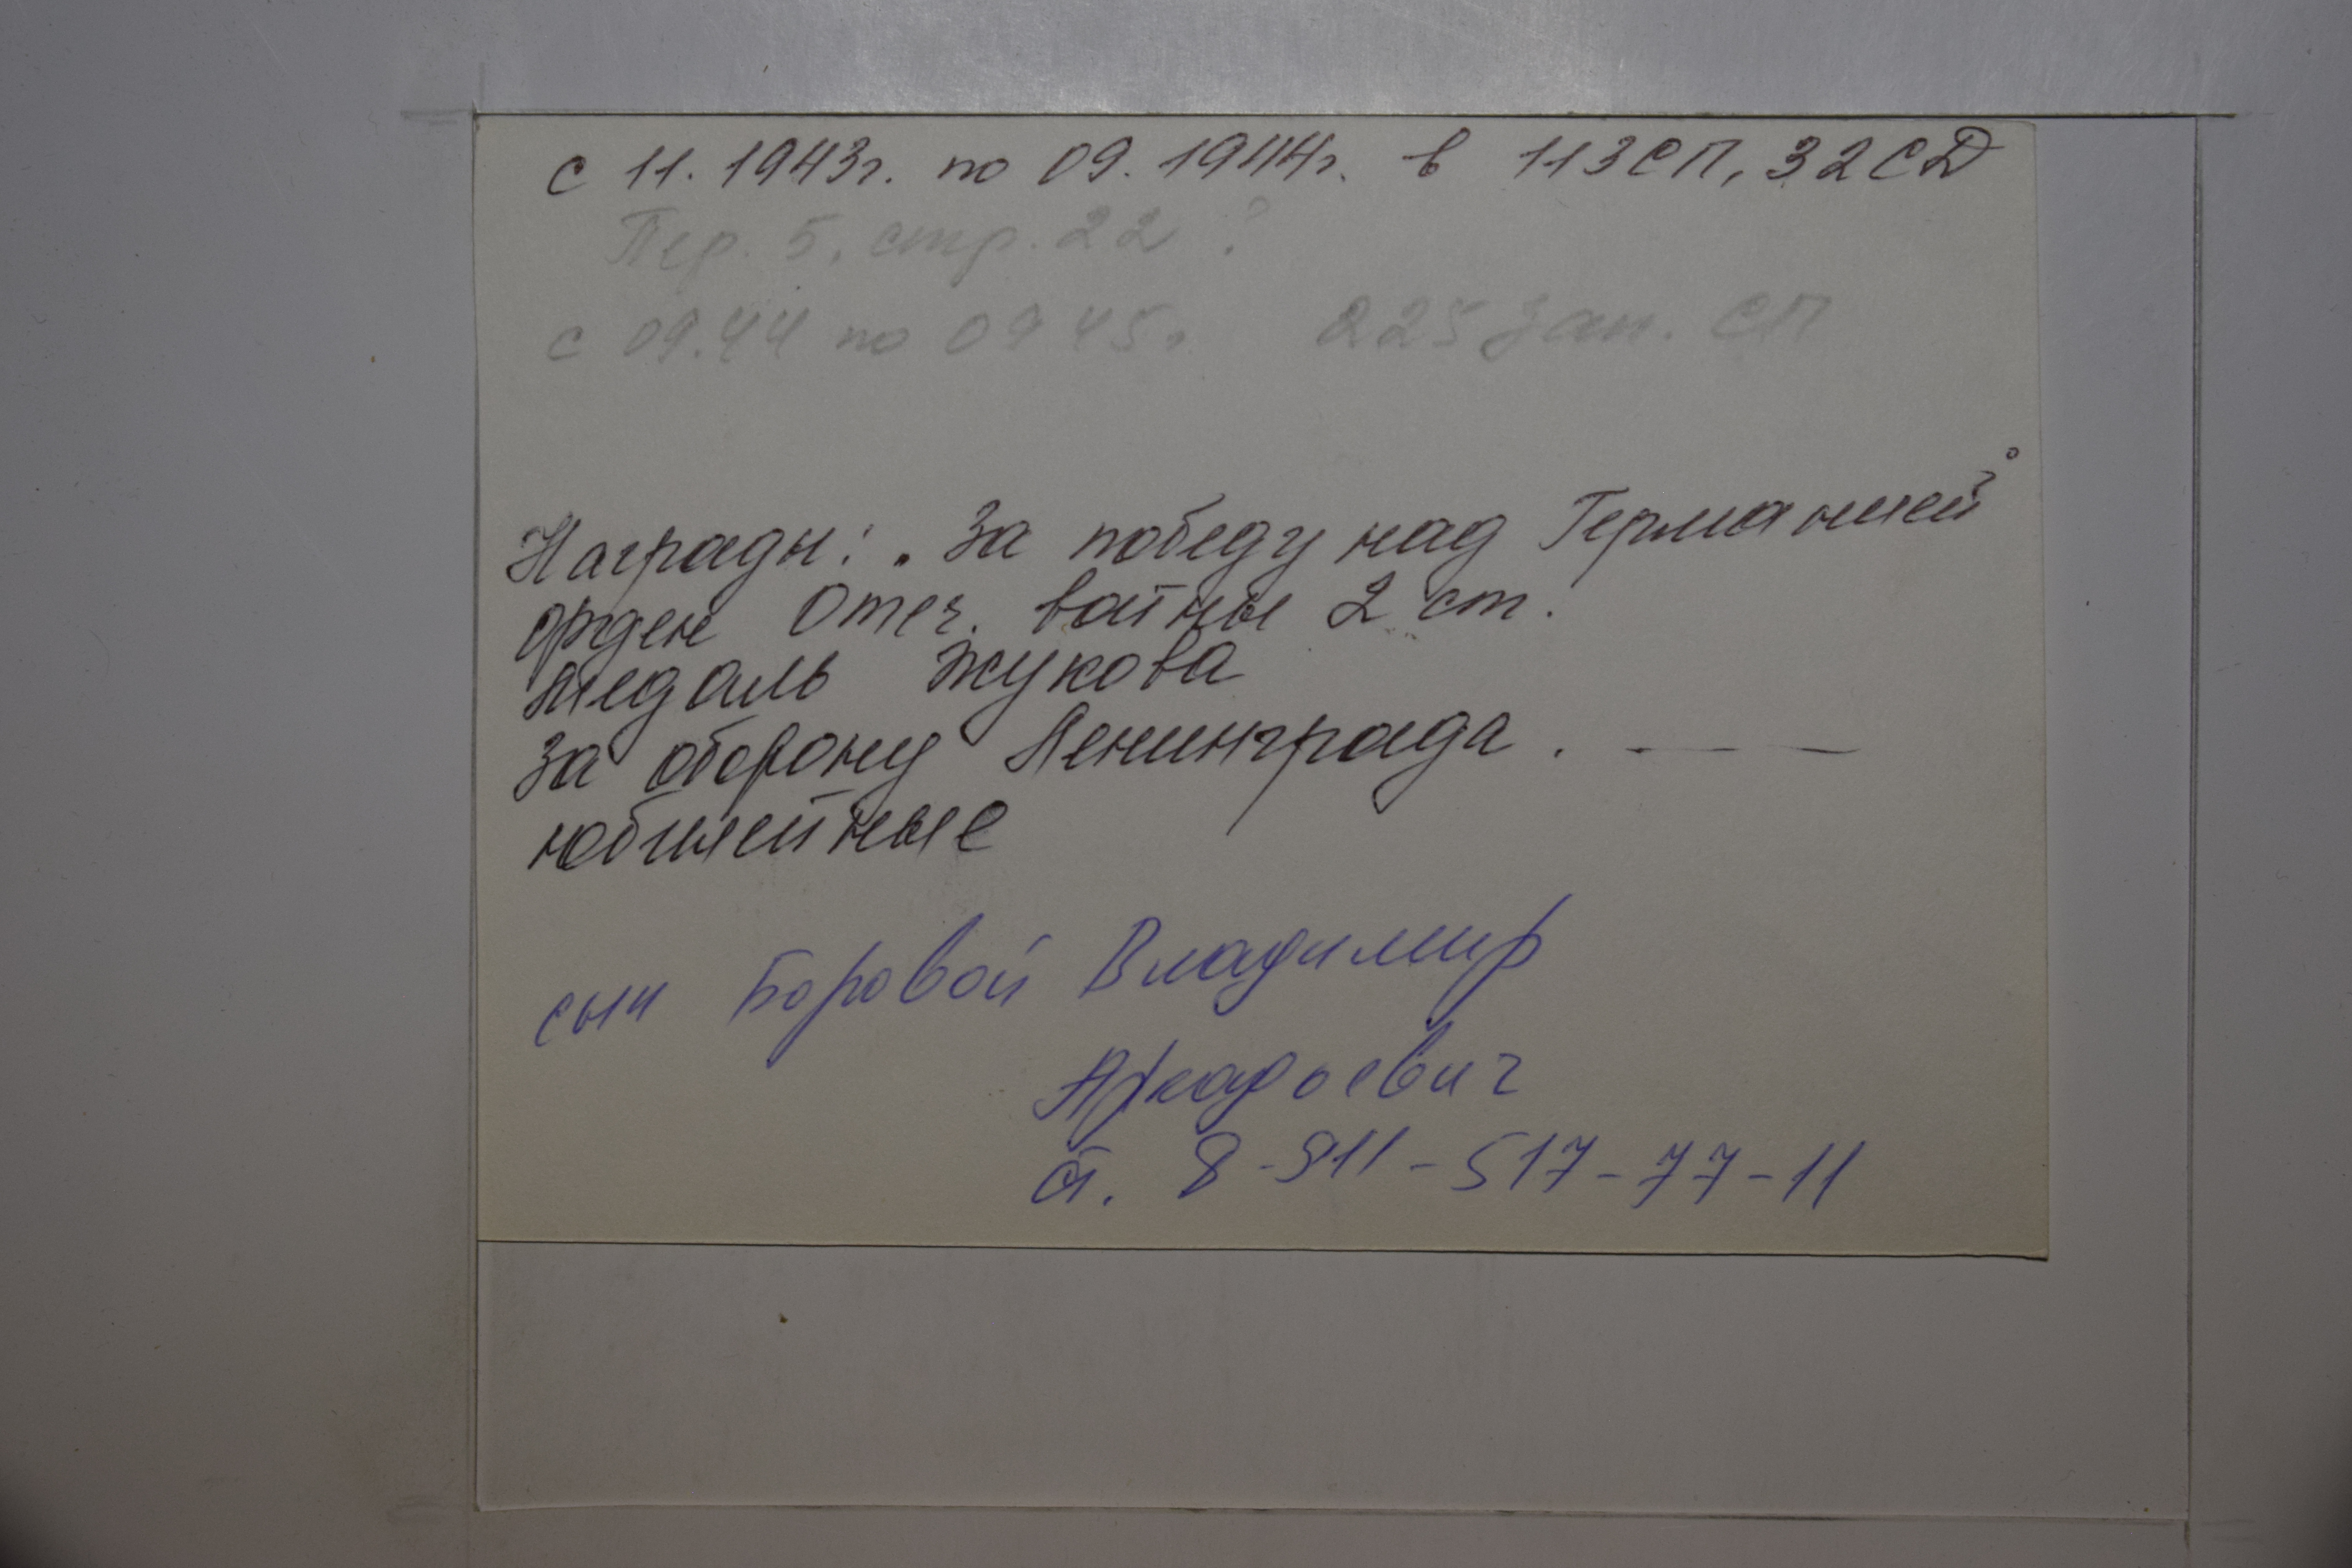 с 11. 1943г. по 09. 1944г. в 113СП, 32СД
Пер. 5, стр. 22 ?
с 09.44 по 09 45г 225 зап. СП
Награды: „За победу над Германией"
орден Отеч. войны 2 ст.
медаль Жукова
За оборону Ленинграда. — —
юбилейные
сын Боровой Владимир
Аркадьевич
т. 8-911-517-77-11